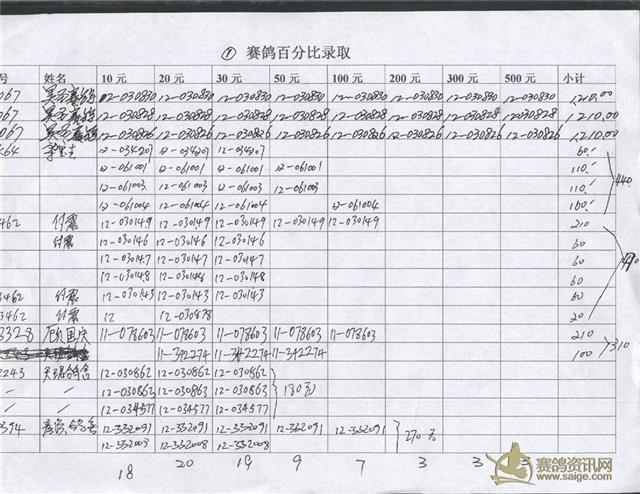 ① 赛鸽百分比录取
号 姓名 10 元 20 元 30 元 50 元 100 元 200 元 300 元 500 元 小计
067 12-030830 12-030830 12-030830 12-030830 12-030830 12-030830 12-030830 12-030830 1,210.00
067 12-030828 12-030828 12-030828 12-030828 12-030828 12-030828 12-030828 12-030828 1,210.00
067 12-030826 12-030826 12-030826 12-030826 12-030826 12-030826 12-030826 12-030826 1,210.00
464 12-034207 12-034207 12-034207 60
12-061001 12-061001 12-061001 12-061001 110
12-061003 12-061003 12-061003 12-061003 110 440
12-061004 12-061004 12-061004 12-061004 160
3462 付震 12-030149 12-030149 12-030149 12-030149 12-030149 210
付震 12-030146 12-030146 12-030146 60
12-030147 12-030147 12-030147 60
12-030148 12-030148 12-030148 60
3462 付震 12-030143 12-030143 12-030143 60
3462 付震 12 12-030878 20
3328 顾国庆 11-078603 11-078603 11-078603 11-078603 11-078603 210 310
11-342274 11-342274 11-342274 100
2243 12-030862 12-030862 12-030862
12-030863 12-030863 180元
12-034577 12-034577 12-034577
12-332091 12-332091 12-332091 12-332091 12-332091 270元
18 20 19 9 7 3 3
赛鸽资讯网
www.saige.com